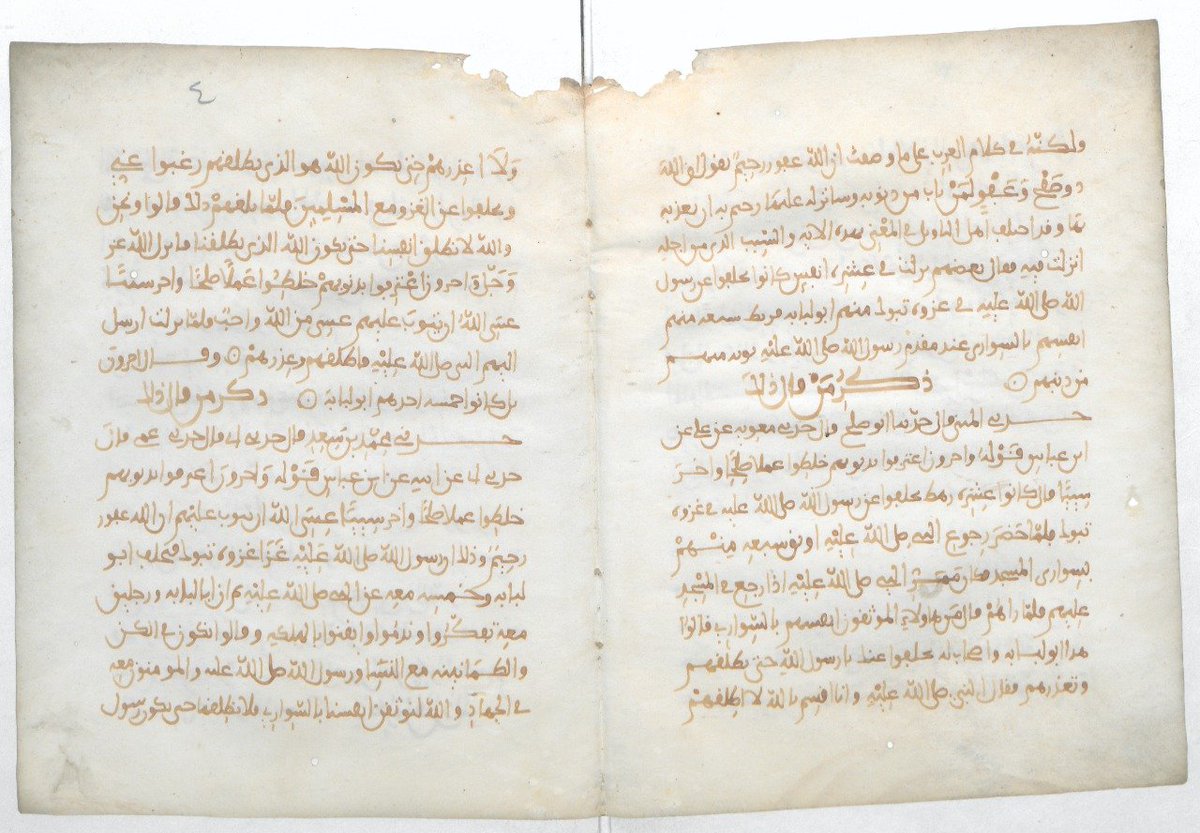 ولكنه في كلام العرب على ما وصفت ان الله غفور رحيم يقول ان الله
ذو صفح وعفو لمن تاب من ذنوبه وساتر له عليها رحيم به ان يعذبه
بها وقد اختلف اهل التاويل في المعني بهذه الاية والسبب الذي من اجله
انزلت فيه فقال بعضهم نزلت في عشرة انفس كانوا تخلفوا عن رسول
الله صلى الله عليه في غزوة تبوك منهم ابو لبابة فربط سبعة منهم
انفسهم بالسواري عند مقدم رسول الله صلى الله عليه توبة منهم
من ذنبهم ⊙ ذكر من قال ذلك
حدثني المثنى قال حدثنا ابو صلح قال حدثني معوية عن علي عن
ابن عباس قوله واخرون اعترفوا بذنوبهم خلطوا عملا صلحا واخر
سيئا قال كانوا عشرة رهط تخلفوا عن رسول الله صلى الله عليه في غزوة
تبوك فلما حضر رجوع النبي صلى الله عليه اوثق سبعة منهم
بسواري المسجد فكان ممر النبي صلى الله عليه اذا رجع في المسجد
عليهم فلما راهم قال من هاولاء الموثقون انفسهم بالسواري قالوا
هذا ابو لبابة واصحاب له تخلفوا عنك يا رسول الله حتى تطلقهم
وتعذرهم فقال النبي صلى الله عليه وانا اقسم بالله لا اطلقهم
٤
ولا اعذرهم حتى يكون الله هو الذي يطلقهم رغبوا عني
وتخلفوا عن الغزو مع المسلمين فلما بلغهم ذلك قالوا ونحن
والله لا نطلق انفسنا حتى يكون الله الذي يطلقنا فانزل الله عز
وجل واخرون اعترفوا بذنوبهم خلطوا عملا صلحا واخر سيئا
عسى الله ان يتوب عليهم عسى من الله واجب فلما نزلت ارسل
اليهم النبي صلى الله عليه فاطلقهم وعذرهم ⊙ وقال اخرون
بل كانوا خمسة احدهم ابو لبابة ⊙ ذكر من قال ذلك
حدثني محمد بن سعد قال حدثني ابي قال حدثني عمي قال
حدثني ابي عن ابيه عن ابن عباس قوله واخرون اعترفوا بذنوبهم
خلطوا عملا صلحا واخر سيئا عسى الله ان يتوب عليهم ان الله غفور
رحيم وذلك ان رسول الله صلى الله عليه غزا غزوة تبوك فتخلف ابو
لبابة وخمسة معه عن النبي صلى الله عليه ثم ان ابا لبابة ورجلين
معه تفكروا وندموا وايقنوا بالهلكة وقالوا نكون في الكن
والطمانينة مع النسا ورسول الله صلى الله عليه والمومنون معه
في الجهاد والله لنوثقن انفسنا بالسواري فلا نطلقها حتى يكون رسول